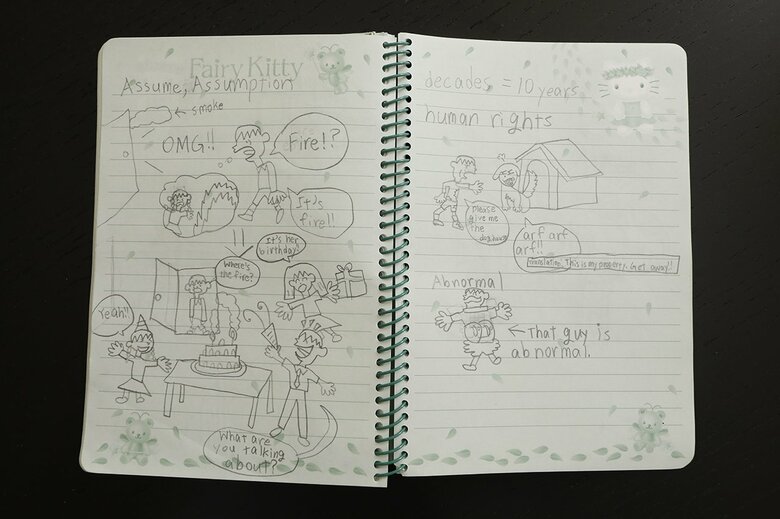 Fairy Kitty
Assume, Assumption
← smoke
OMG!!
Fire!?
It's
fire!!
It's her
birthday!
Where's
the fire?
Yeah!!
What are
you talking
about?
decades = 10 years
human rights
Please
give me
the
dog house
arf arf
arf!!
translation: This is my property. Get away!!
Abnormal
← That guy is
abnormal.